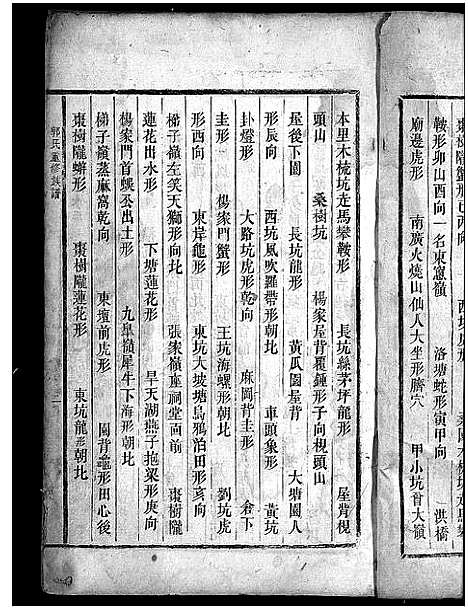 棗樹隴蟹形巳酉向 西坑虎形
鞍形卯山酉向一名東窻嶺 洛塘蛇形寅甲向 洪橋
廟邊虎形 南廣火燒山仙人大坐形臍穴 甲小坑背大嶺
本里木梳坑走馬攀鞍形 長坑絲茅坪龍形 屋背梘
頭山 桑樹坑 楊家屋背覆鍾形子向梘頭山
屋後下園 長坑龍形 黃瓜園屋背 大塘園人
形辰向 西坑風吹羅帶形朝北 車頭象形 黃坑
卦燈形 大路坑虎形乾向 麻岡背圭形 傘下
圭形 楊家門蟹形 王坑海螺形朝北 劉坑虎
形西向 東岸龜形 東坑大坡塘烏鴉泊田形亥向
梯子嶺左笑天獅形向北 張家嶺座祠堂面前 棗樹隴
蓮花出水形 下塘蓮花形 旱天湖燕子抱梁形庚向
楊家門首螟公出土形 九臯嶺犀牛下海形朝北
梯子嶺蒸麻窩乾向 東壇前虎形 岡背龜形田心後
棗樹隴蟒形 棗樹隴蓮花形 東坑龍形朝北
郭氏重修族譜